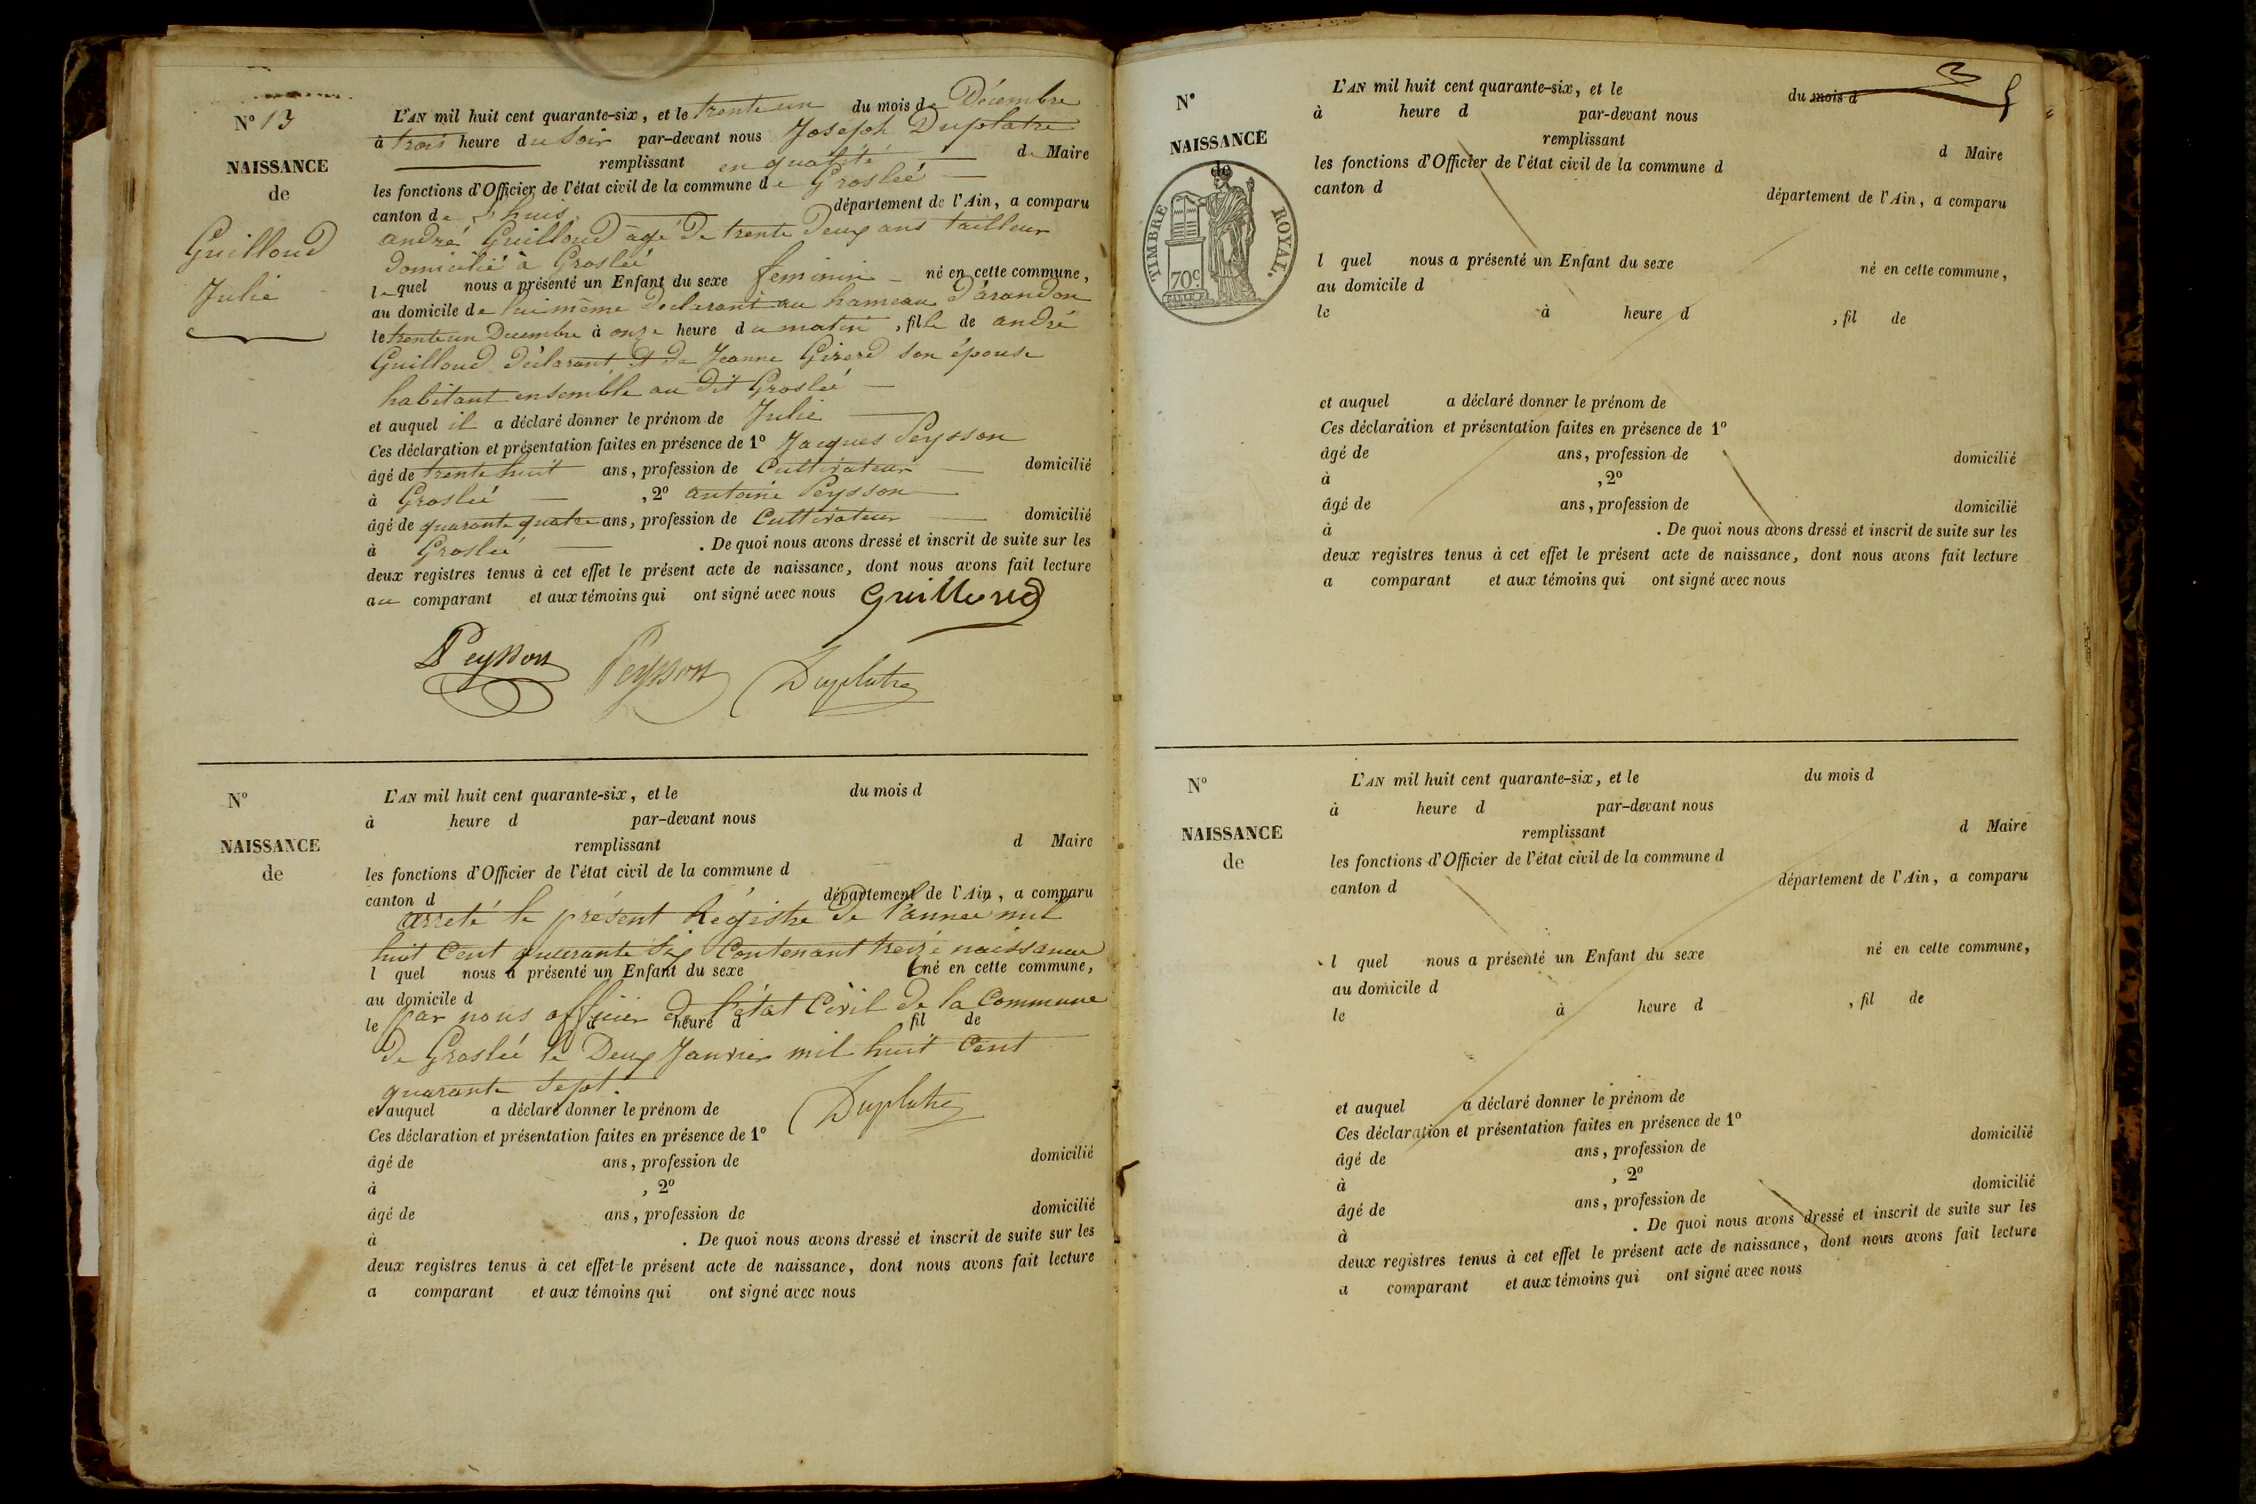 Nº 13
NAISSANCE
de
Guilloud
Julie
L'AN mil huit cent quarante-six, et le trente un du mois de Décembre
à trois heure du Soir par-devant nous Joseph Duplatre
remplissant en qualité de Maire
les fonctions d'Officier de l'état civil de la commune de Groslée
canton de Lhuis département de l'Ain, a comparu
andré Guilloud âgé De trente Deux ans tailleur
Domicilié à Groslée
lequel nous a présenté un Enfant du sexe feminin né en cette commune,
au domicile de lui même Déclarant au hameau D'arandon
le trente un Decembre à onze heure du matin, fille de andré
Guilloud Déclarant et de Jeanne Girerd son épouse
habitant ensemble au Dit Groslée
et auquel il a déclaré donner le prénom de Julie
Ces déclaration et présentation faites en présence de 1º Jacques Peysson
âgé de trente huit ans, profession de Cultivateur domicilié
à Groslée, 2º antoine Peysson
âgé de quarante quatre ans, profession de Cultivateur domicilié
à Groslée. De quoi nous avons dressé et inscrit de suite sur les
deux registres tenus à cet effet le présent acte de naissance, dont nous avons fait lecture
au comparant et aux témoins qui ont signé avec nous Guilloud
Peysson Peysson Duplatre
Nº
NAISSANCE
de
L'AN mil huit cent quarante-six, et le du mois d
à heure d par-devant nous
remplissant d Maire
les fonctions d'Officier de l'état civil de la commune d
canton d département de l'Ain, a comparu
arreté le présent Régistre De l'annee mil
huit Cent quarante Six Contenant treize naissances
l quel nous a présenté un Enfant du sexe né en cette commune,
au domicile d
par nous officier de l'état Civil de la Commune
le à heure d fil de
De Groslée le Deux Janvier mil huit Cent
quarante Sept.
et auquel a déclaré donner le prénom de
Duplatre
Ces déclaration et présentation faites en présence de 1º
âgé de ans, profession de domicilié
à , 2º
âgé de ans, profession de domicilié
à . De quoi nous avons dressé et inscrit de suite sur les
deux registres tenus à cet effet le présent acte de naissance, dont nous avons fait lecture
a comparant et aux témoins qui ont signé avec nous
Nº
NAISSANCE
de
TIMBRE ROYAL.
70 c
L'AN mil huit cent quarante-six, et le du mois d
à heure d par-devant nous
remplissant d Maire
les fonctions d'Officier de l'état civil de la commune d
canton d département de l'Ain, a comparu
l quel nous a présenté un Enfant du sexe né en cette commune,
au domicile d
le à heure d , fil de
et auquel a déclaré donner le prénom de
Ces déclaration et présentation faites en présence de 1º
âgé de ans, profession de domicilié
à , 2º
âgé de ans, profession de domicilié
à . De quoi nous avons dressé et inscrit de suite sur les
deux registres tenus à cet effet le présent acte de naissance, dont nous avons fait lecture
a comparant et aux témoins qui ont signé avec nous
Nº
NAISSANCE
de
L'AN mil huit cent quarante-six, et le du mois d
à heure d par-devant nous
remplissant d Maire
les fonctions d'Officier de l'état civil de la commune d
canton d département de l'Ain, a comparu
l quel nous a présenté un Enfant du sexe né en cette commune,
au domicile d
le à heure d , fil de
et auquel a déclaré donner le prénom de
Ces déclaration et présentation faites en présence de 1º
âgé de ans, profession de domicilié
à , 2º
âgé de ans, profession de domicilié
à . De quoi nous avons dressé et inscrit de suite sur les
deux registres tenus à cet effet le présent acte de naissance, dont nous avons fait lecture
a comparant et aux témoins qui ont signé avec nous